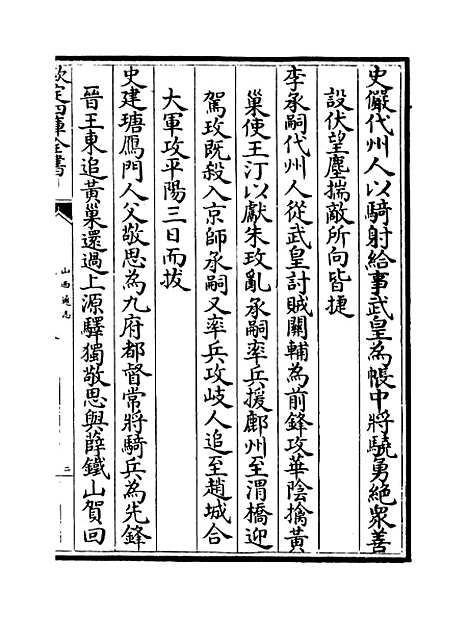 史儼代州人以騎射給事武皇為帳中將驍勇絶衆善
設伏望塵揣敵所向皆捷
李承嗣代州人從武皇討賊關輔為前鋒攻華陰擒黃
巢使王汀以獻朱玫亂承嗣率兵援鄜州至渭橋迎
駕玫既殺入京師承嗣又率兵攻岐人追至趙城合
大軍攻平陽三日而拔
史建瑭鴈門人父敬思為九府都督常將騎兵為先鋒
晉王東追黃巢還過上源驛獨敬思與薛鐵山賀回
欽定四庫全書
山西通志
二